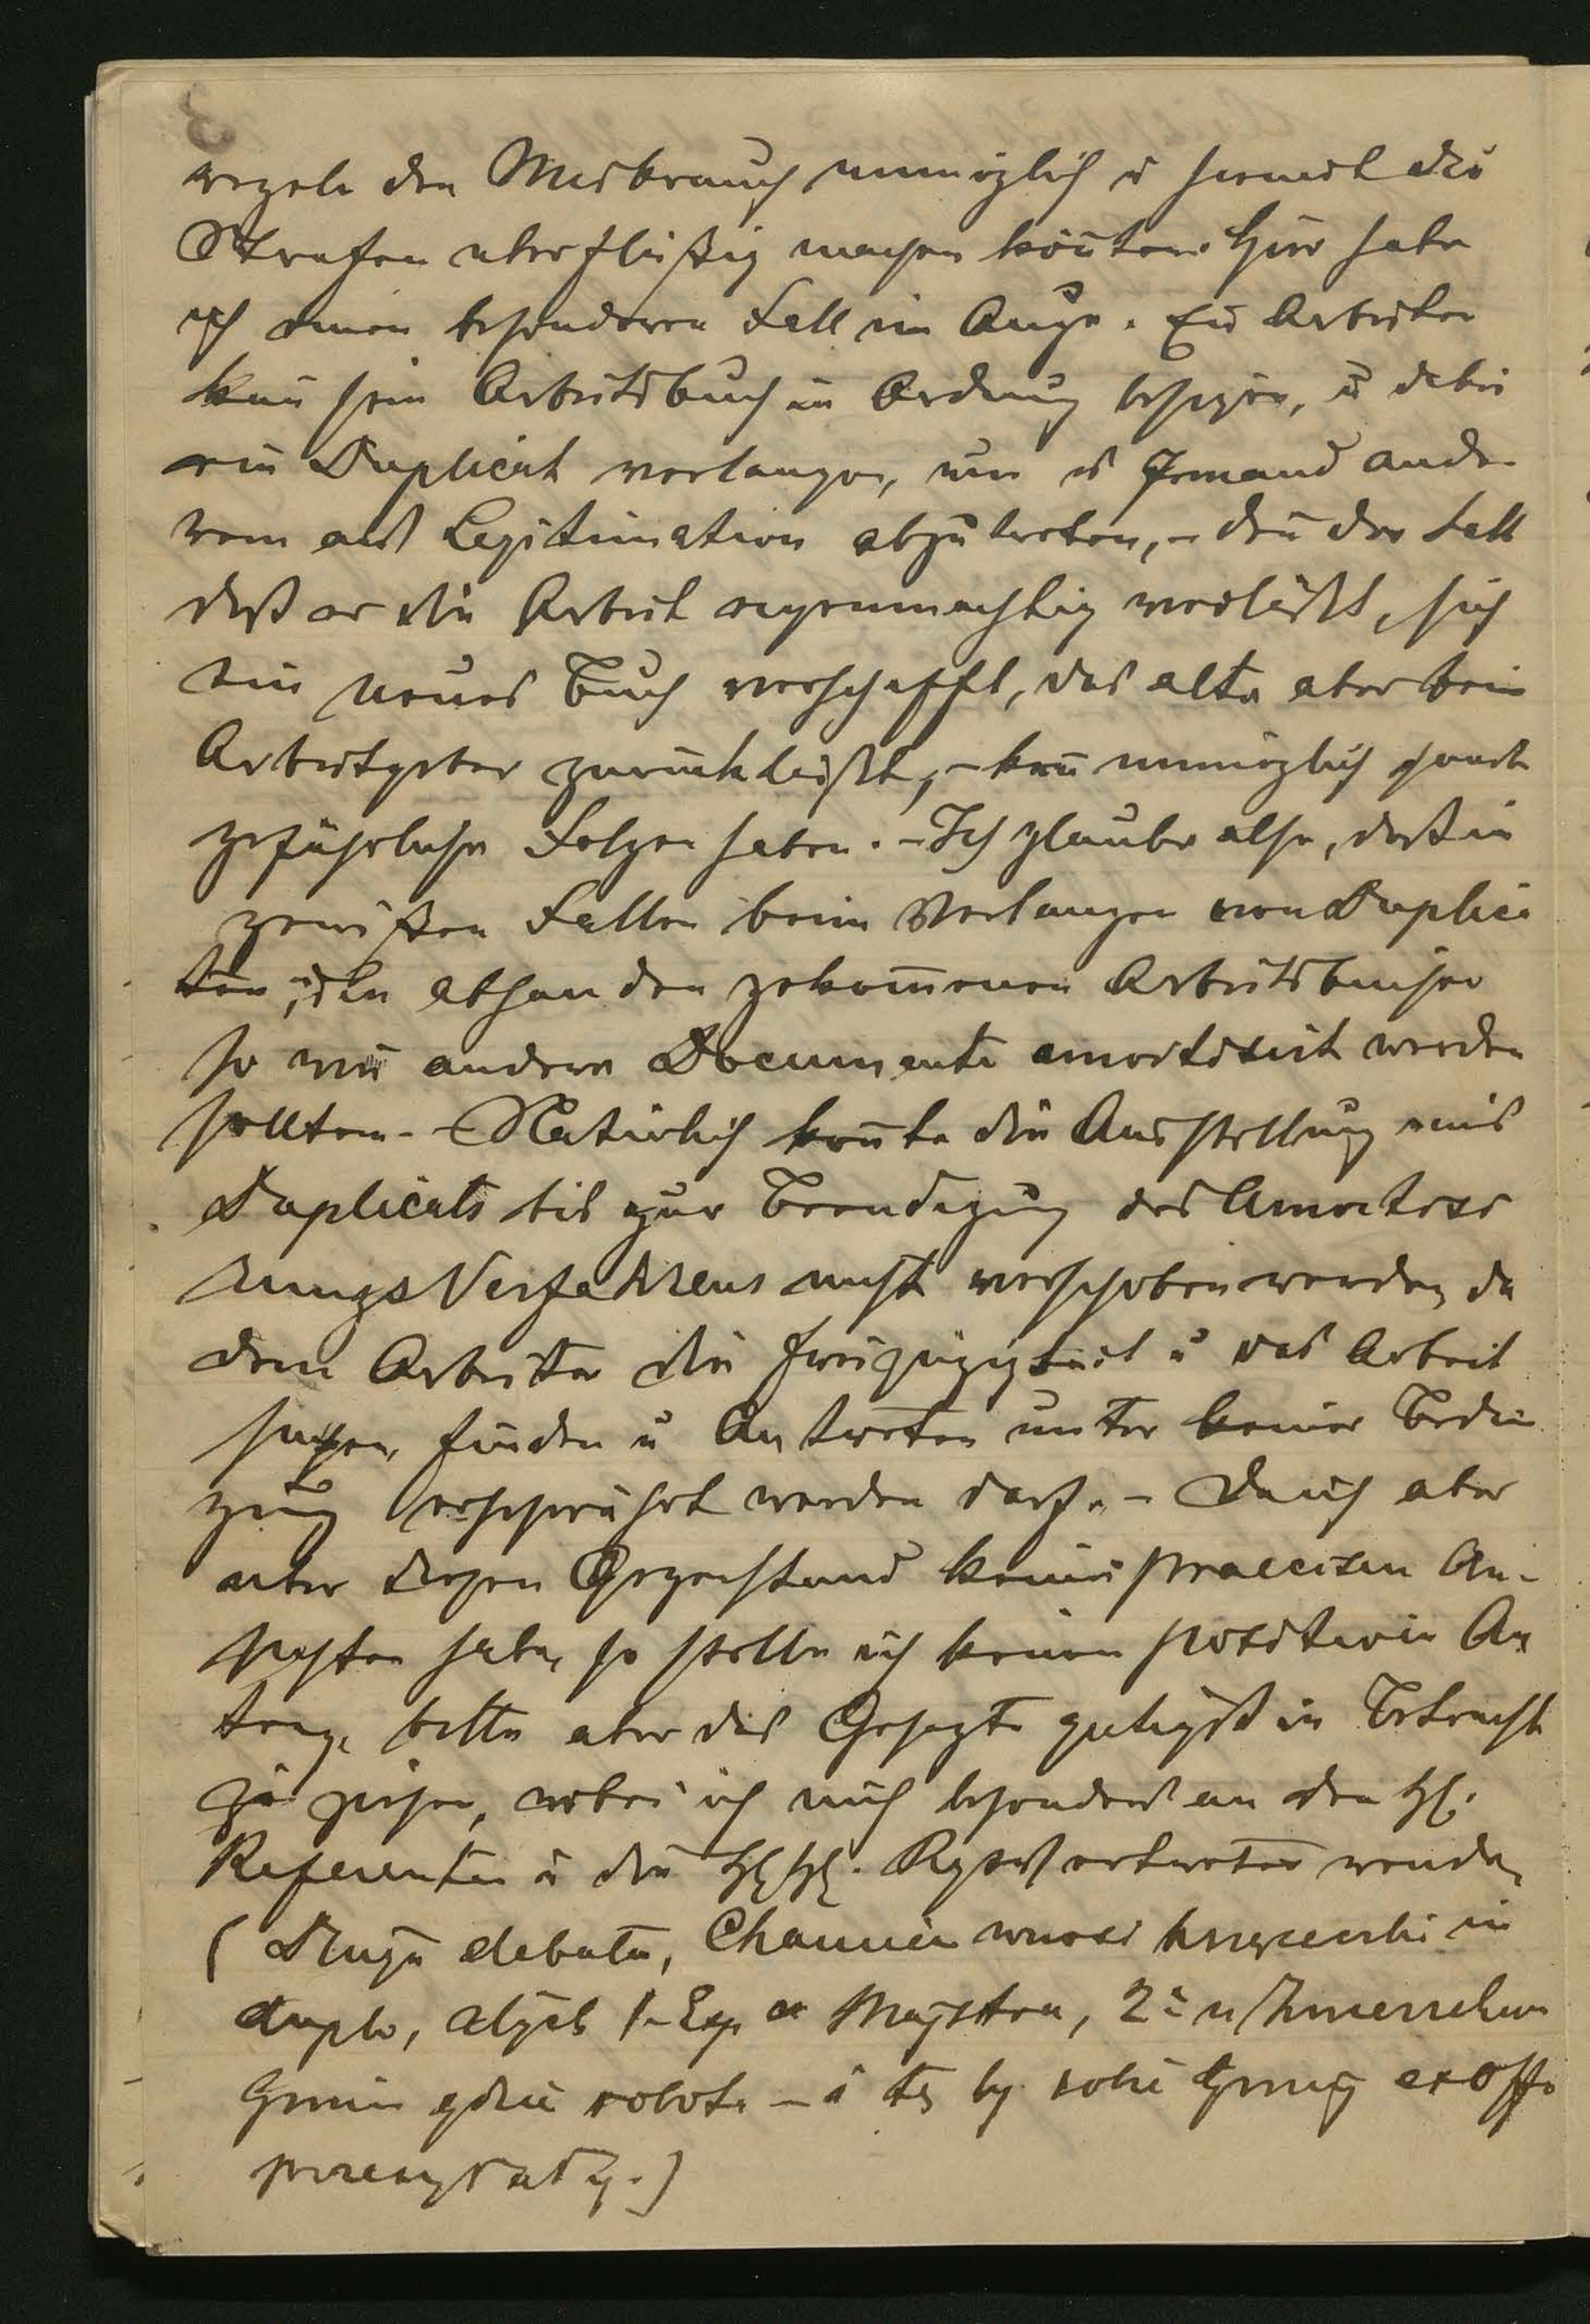 3
regeln den Misbrauch unmöglich u somit die
Strafen überflüßig machen könnten. Hier habe
ich einen besonderen Fall im Auge. Ein Arbeiter
kan̄ sein Arbeitsbuch in Ordnung besizen, u dabei
ein Duplicat verlangen, um es Jemand ande-
rem als Legitimation abzutreten, – den̄ der Fall
daß er die Arbeit eigenmächtig verläßt, sich
ein neues Buch verschafft, das alte aber beim
Arbeitgeber zurückläßt, – kan̄ unmöglich
gefährliche Folgen haben. – Ich glaube also, daß in
gewißen Fällen beim Verlangen von Duplica
ten, die abhanden gekom̄enen Arbeitsbücher
so wie andere Documente amortisirt werden
sollten. – Natürlich kön̄te die Ausstellung eines
Duplicats bis zur Beendigung des Amortisi
rungs Verfahrens nicht verschoben werden, da
dem Arbeiter die Freizügigkeit u das Arbeit
suchen, finden u Antreten unter keiner Bedin
gung erschwährt werden darf. – Da ich aber
über diesen Gegenstand keine praecisen An-
sichten habe, so stelle ich keinen positiven An
trag, bitte aber das Gesagte gütigst in Betracht
zu ziehen, wobei ich mich besonders an den H.
Referenten u die HH. Regsvertreter wende,
(Długa debata, Chamiec wnosi książeczki in
duplo, albo 1. Exp a Majstra, 2. u Zwierzchn
Gmin gdzie robota – i te by sobie Gminy ex offo
przesyłały.)